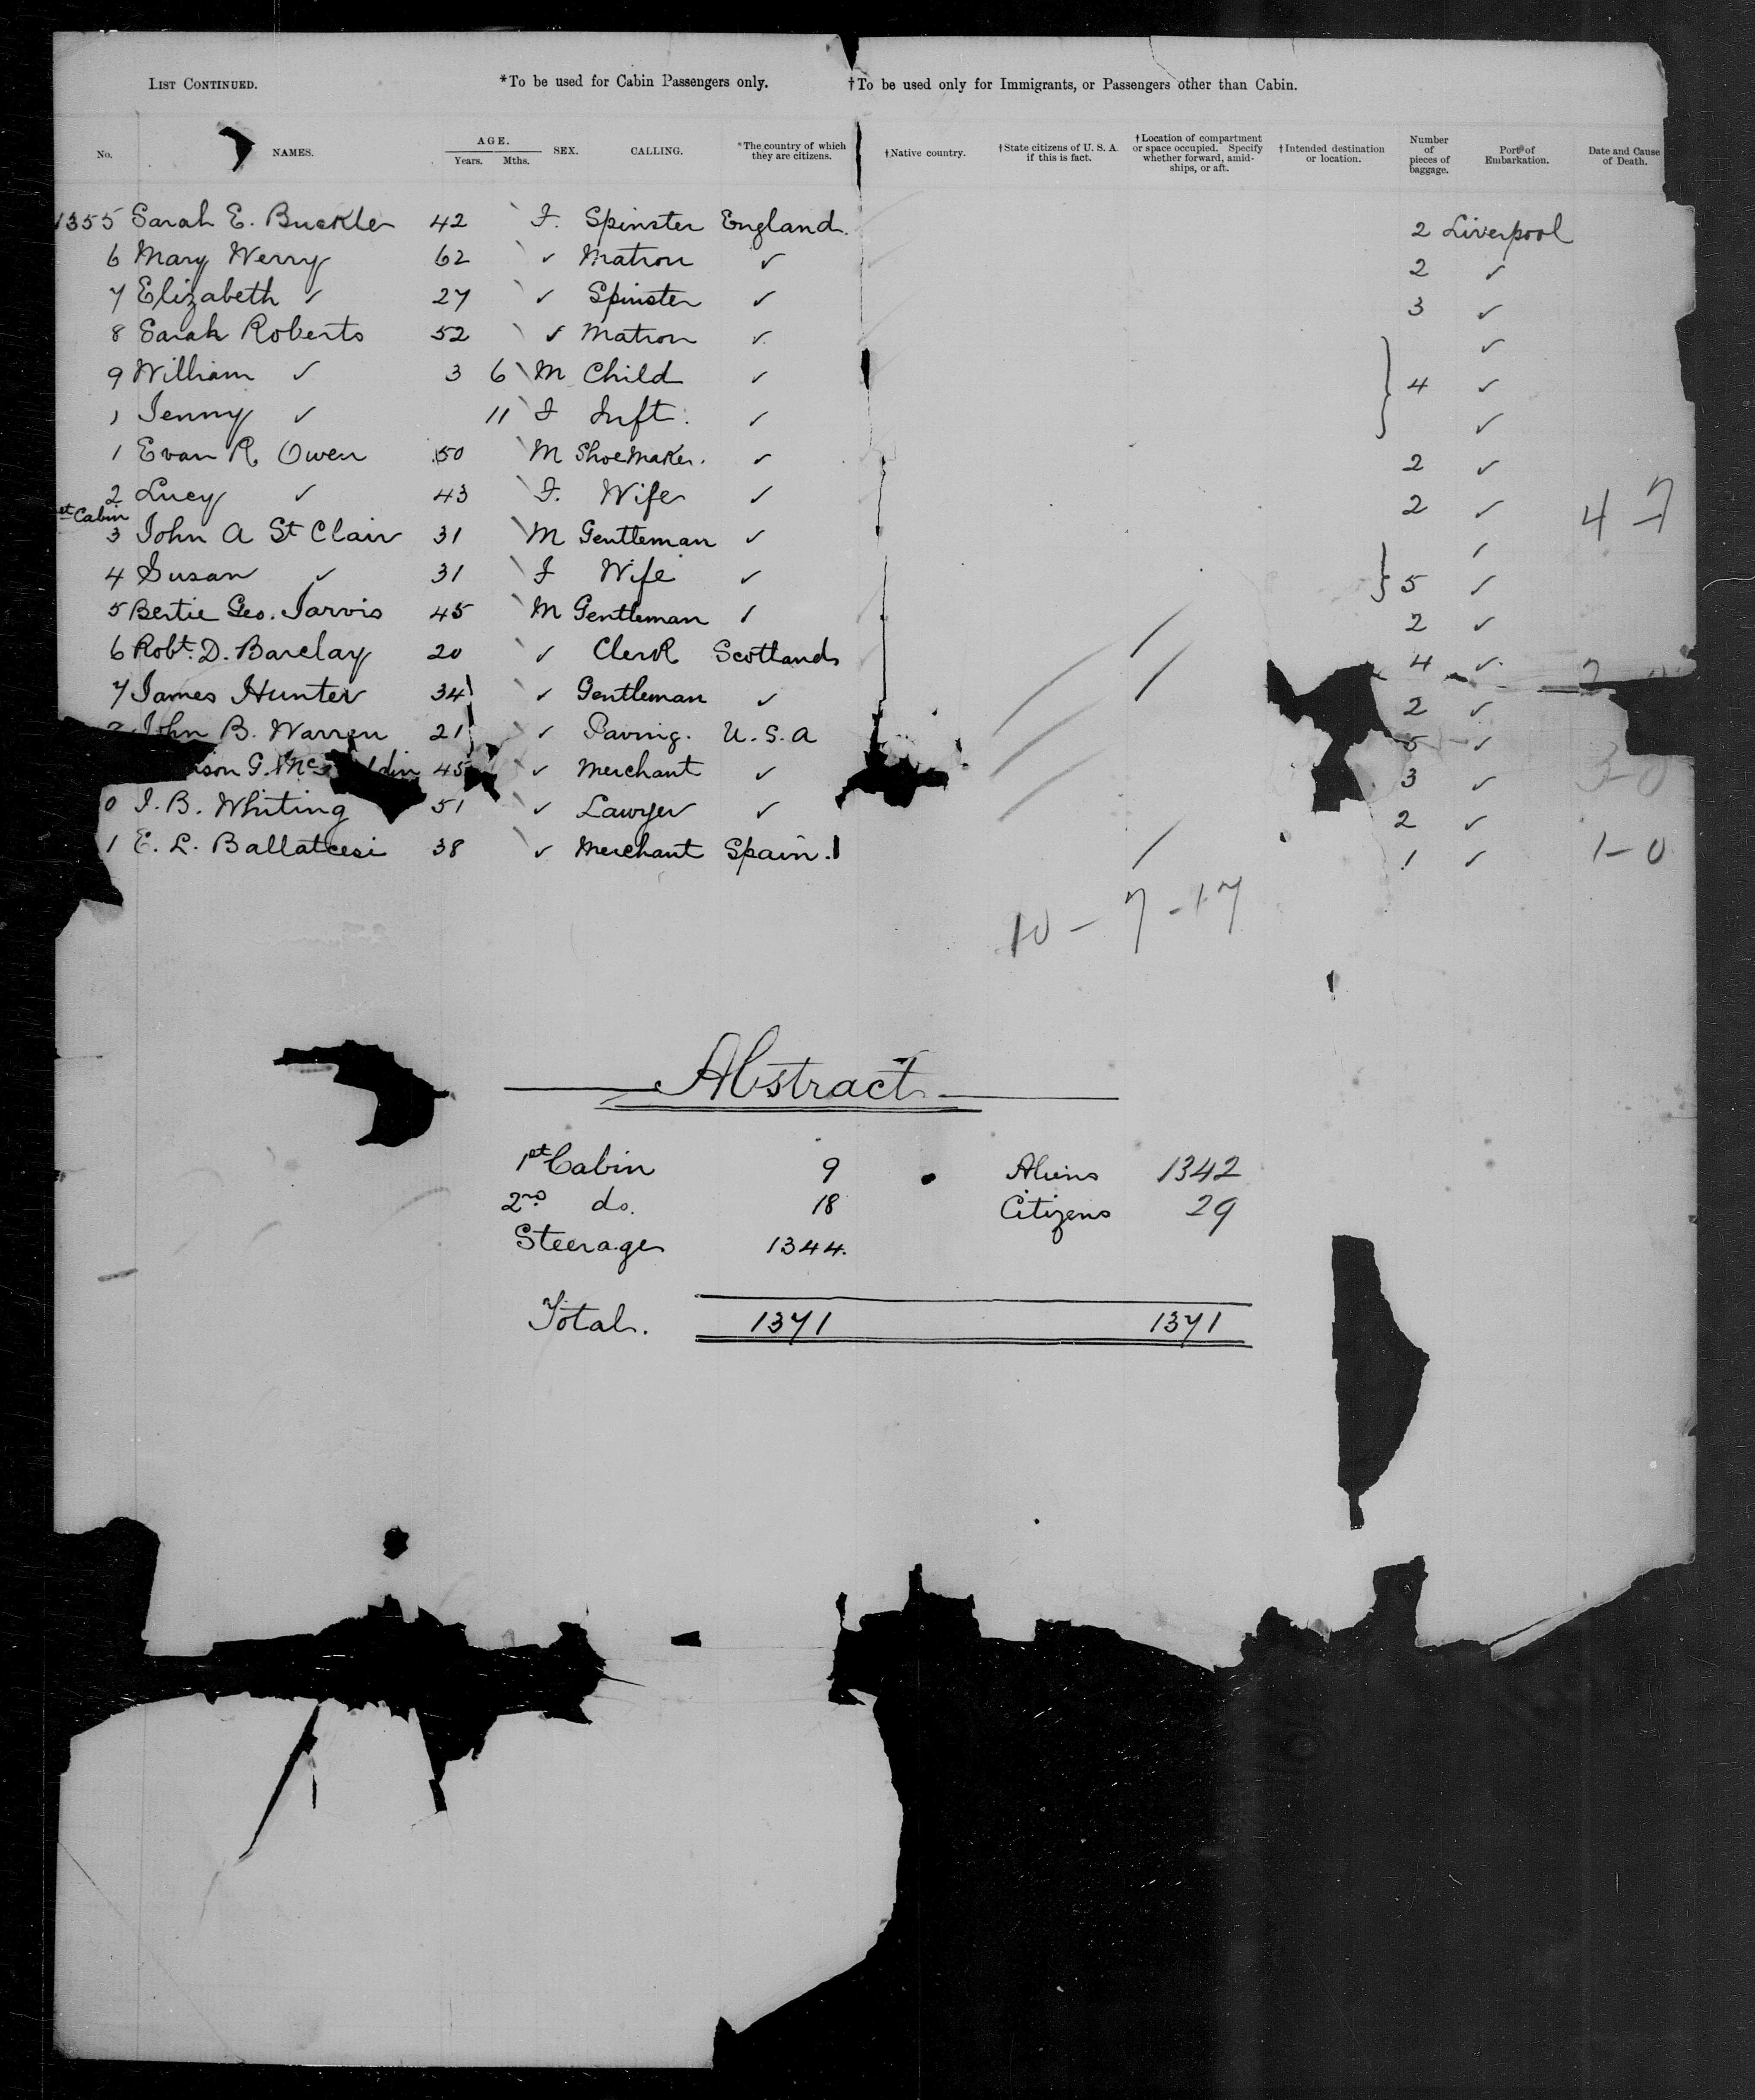 LIST CONTINUED. *To be used for Cabin Passengers only. †To be used only for Immigrants, or Passengers other than Cabin.
No. NAMES. AGE. Years. Mths. SEX. CALLING. *The country of which they are citizens. †Native country. †State citizens of U. S. A. if this is fact. †Location of compartment or space occupied. Specify whether forward, amid-ships, or aft. †Intended destination or location. Number of pieces of baggage. Port of Embarkation. Date and Cause of Death.
1355 Sarah E. Buckler 42 F. Spinster England. 2 Liverpool
6 Mary Werry 62 ✓ Matron ✓ 2 ✓
7 Elizabeth ✓ 27 ✓ Spinster ✓ 3 ✓
8 Sarah Roberts 52 ✓ Matron ✓ ✓
9 William ✓ 3 6 M Child ✓ } 4 ✓
1 Jenny ✓ 11 F Inft. ✓ ✓
1 Evan R. Owen 50 M Shoemaker. ✓ 2 ✓
2 Lucy ✓ 43 F. Wife ✓ 2 ✓ 4-7
st Cabin
3 John A St Clair 31 M Gentleman ✓ ✓
4 Susan ✓ 31 F Wife ✓ } 5 ✓
5 Bertie Geo. Jarvis 45 M Gentleman ✓ 2 ✓
6 Robt. D. Barclay 20 ✓ Clerk Scotland 4 ✓
7 James Hunter 34 ✓ Gentleman ✓ 2 ✓
John B. Warren 21 ✓ Paving. U.S.A 5 ✓
son G. Mc 45 ✓ Merchant ✓ 3 ✓ 3-0
0 J. B. Whiting 51 ✓ Lawyer ✓ 2 ✓
1 E. L. Ballatcesi 38 ✓ Merchant Spain. 1 ✓ 1-0
10-7-17
Abstract
1st Cabin 9 Aliens 1342
2nd do. 18 Citizens 29
Steerage 1344.
Total. 1371 1371